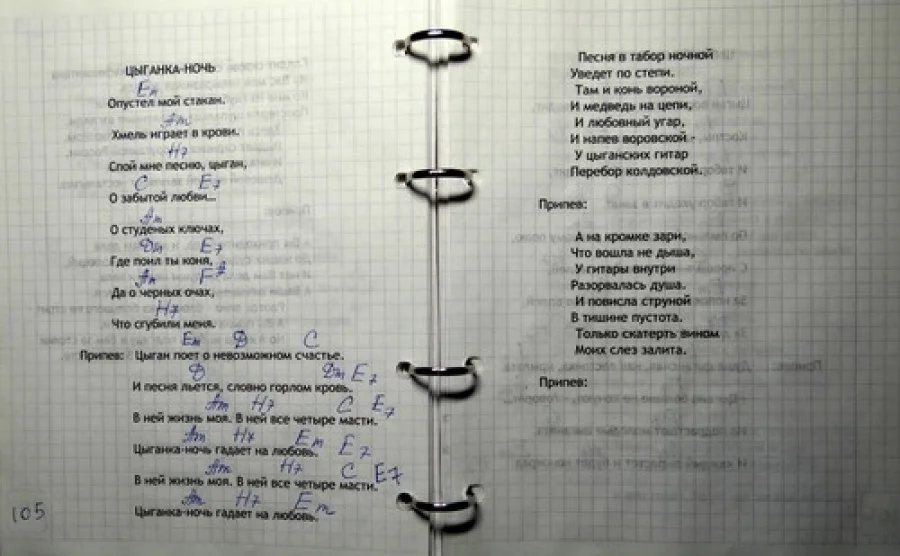 ЦЫГАНКА-НОЧЬ
Em
Опустел мой стакан.
Am
Хмель играет в крови.
H7
Спой мне песню, цыган,
C E7
О забытой любви...
Am
О студеных ключах,
Dm E7
Где поил ты коня,
Am F#
Да о черных очах,
H7
Что сгубили меня.
Em D C
Припев: Цыган поет о невозможном счастье.
D Dm E7
И песня льется, словно горлом кровь.
Am H7 C E7
В ней жизнь моя. В ней все четыре масти.
Am H7 Em E7
Цыганка-ночь гадает на любовь.
Am H7 C E7
В ней жизнь моя. В ней все четыре масти.
Am H7 Em
Цыганка-ночь гадает на любовь.
105
Песня в табор ночной
Уведет по степи.
Там и конь вороной,
И медведь на цепи,
И любовный угар,
И напев воровской -
У цыганских гитар
Перебор колдовской.
Припев:
А на кромке зари,
Что вошла не дыша,
У гитары внутри
Разорвалась душа.
И повисла струной
В тишине пустота.
Только скатерть вином
Моих слез залита.
Припев: